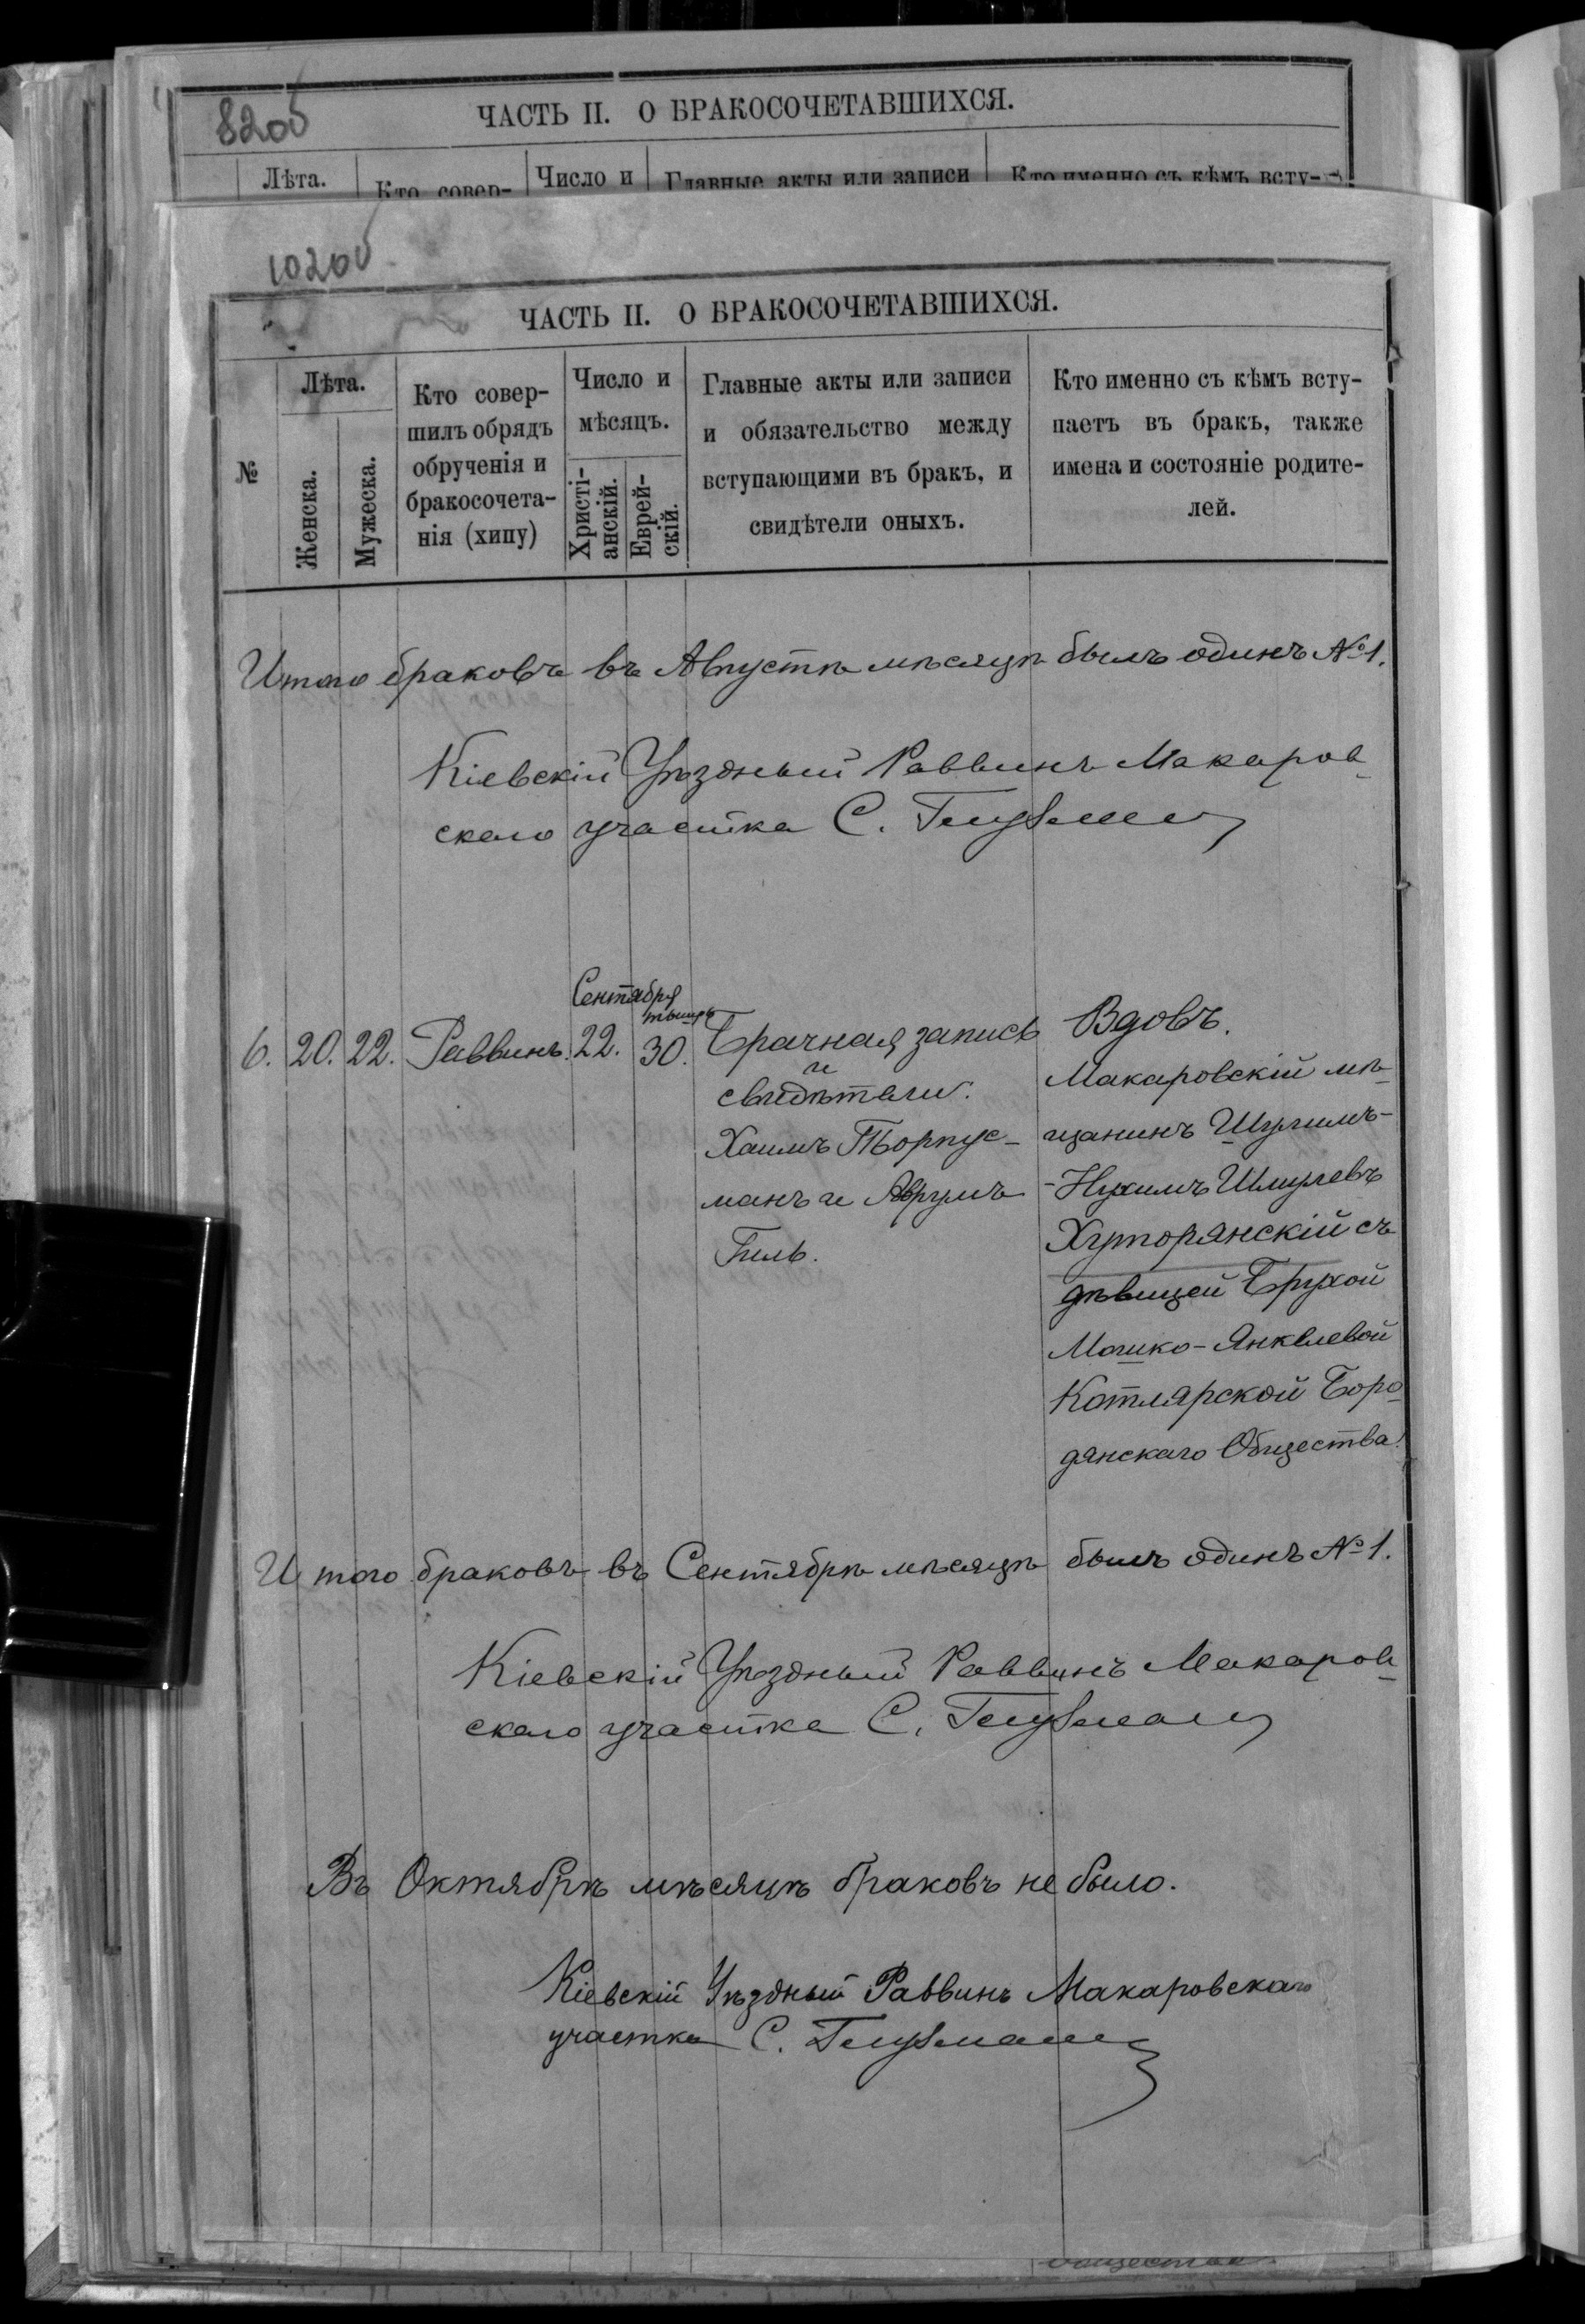 820об
ЧАСТЬ II. О БРАКОСОЧЕТАВШИХСЯ.
Лѣта.
Кто совер-
Число и
Главные акты или записи
Кто именно съ кѣмъ всту-
1020об
ЧАСТЬ II. О БРАКОСОЧЕТАВШИХСЯ.
№
Лѣта.
Женска.
Мужеска.
Кто совер-
шилъ обрядъ
обрученія и
бракосочета-
нія (хипу)
Число и
мѣсяцъ.
Христі-
анскій.
Еврей-
скій.
Главные акты или записи
и обязательство между
вступающими въ бракъ, и
свидѣтели оныхъ.
Кто именно съ кѣмъ всту-
паетъ въ бракъ, также
имена и состояніе родите-
лей.
Итого браковъ въ Августѣ мѣсяцѣ былъ одинъ №1.
Кіевскій Уѣздный Раввинъ Макаров-
скаго участка С.
Сентября
6. 20. 22. Раввинъ. 22. 30.
Брачная запись
и
свидѣтели:
Хаимъ
манъ и Аврумъ
Гиль.
Вдовъ.
Макаровскій мѣ-
щанинъ Шулимъ-
-Нухимъ Шмулевъ
Хуторянскій съ
дѣвицей Брухой
Мошко-Янкелевой
Котлярской Боро-
дянскаго Общества.
Итого браковъ въ Сентябрѣ мѣсяцѣ былъ одинъ №1.
Кіевскій Уѣздный Раввинъ Макаров-
скаго участка С.
Въ Октябрѣ мѣсяцѣ браковъ не было.
Кіевскій Уѣздный Раввинъ Макаровскаго
участка С.
общества